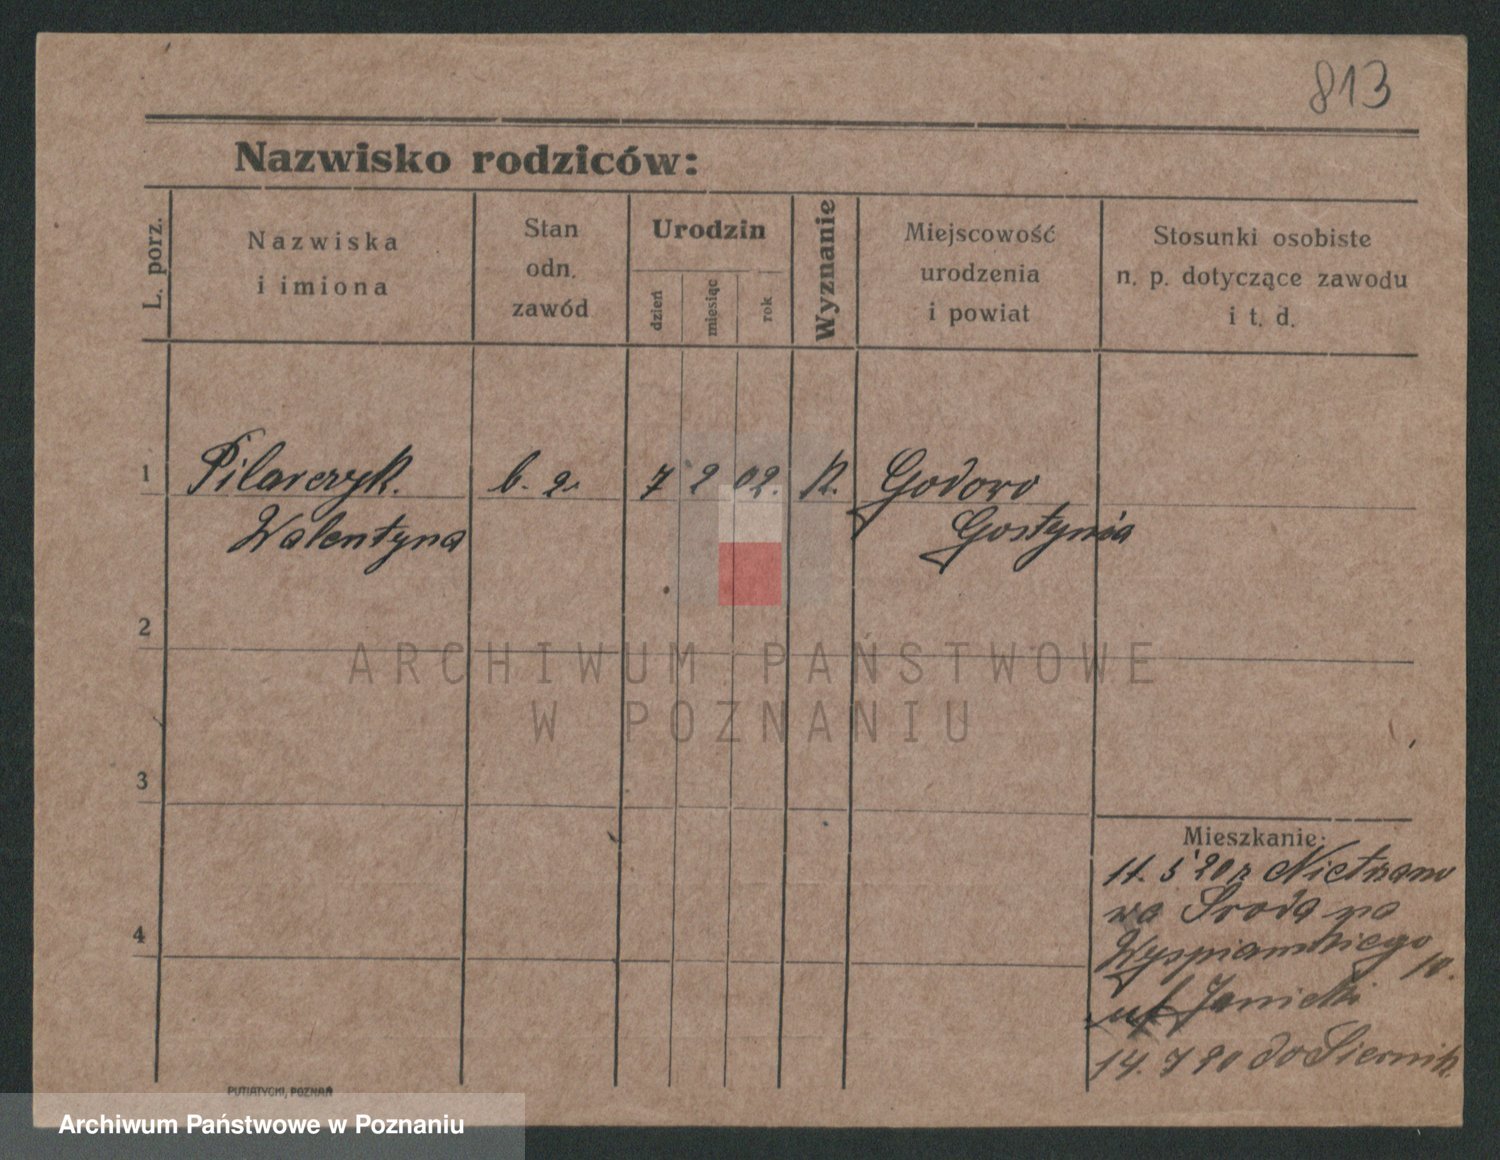 813
Nazwisko rodziców:
L. porz.
Nazwiska
i imiona
Stan
odn.
zawód
Urodzin
dzień
miesiąc
rok
Wyznanie
Miejscowość
urodzenia
i powiat
Stosunki osobiste
n. p. dotyczące zawodu
i t. d.
1
Pilarczyk. b. 7 2 02. K. Godowo
Walentyna Gostynia
2
ARCHIWUM PAŃSTWOWE
W POZNANIU
3
Mieszkanie:
11. 5 20 z
Środa na
Wyspiańskiego 10.
Janicki
4
14. 7 20 do Siernik.
PUTIATYCKI, POZNAŃ
Archiwum Państwowe w Poznaniu